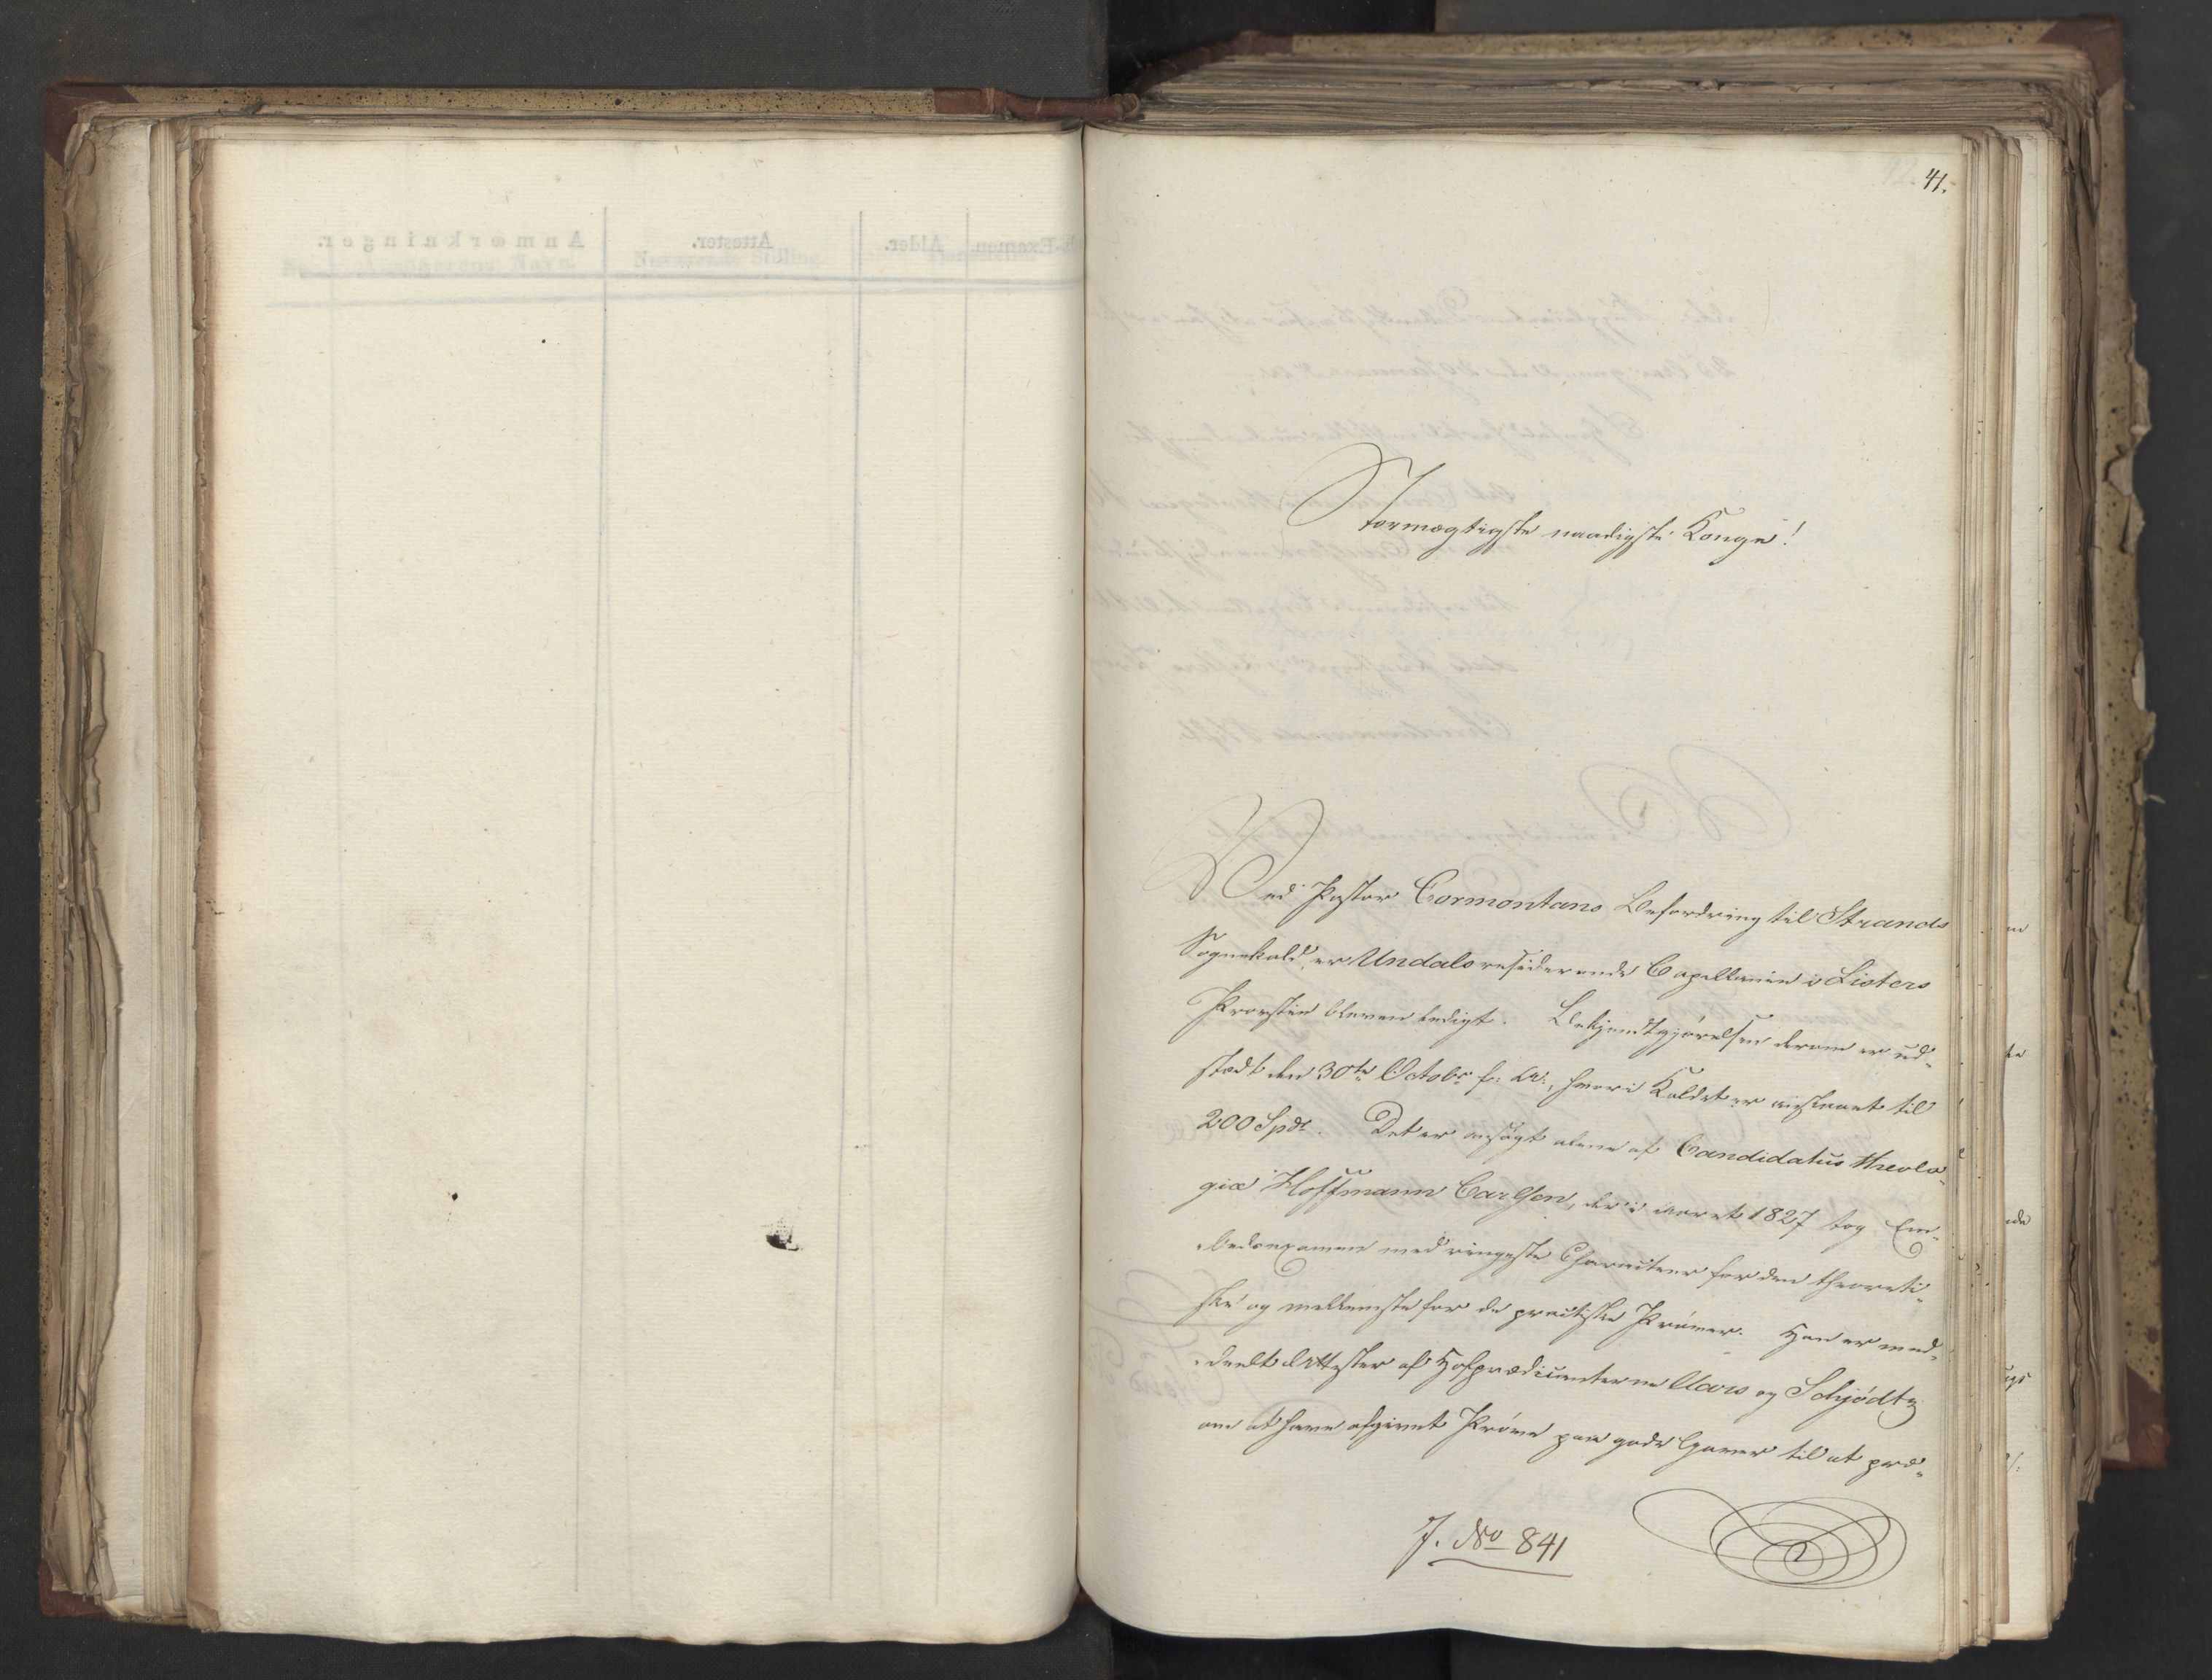 41.
Stormægtigste naadigste Konge!
Ved Pastor Cormontans Befordring til Strands
Sognekald, er Undals residerende Capellanie i Listers
Provstie bleven ledigt. Bekjendtgjørelsen derom er ud-
stædt den 30te Octobr f: A:, hvori Kaldet er anslaaet til
200 Spd. Det er ansøgt alene af Candidatus theolo-
giæ Hoffmann Carlsen, der i Aaret 1827 tog Em-
bedsexamen med ringeste Charakteer for den theoreti-
ske og mellemste for de practiske Prøver. Han er med-
deelt Attester af Hofprædicanterne Aars og Schjødtz
om at have afgivet Prøve paa gode Gaver til at præ-
J. No 841